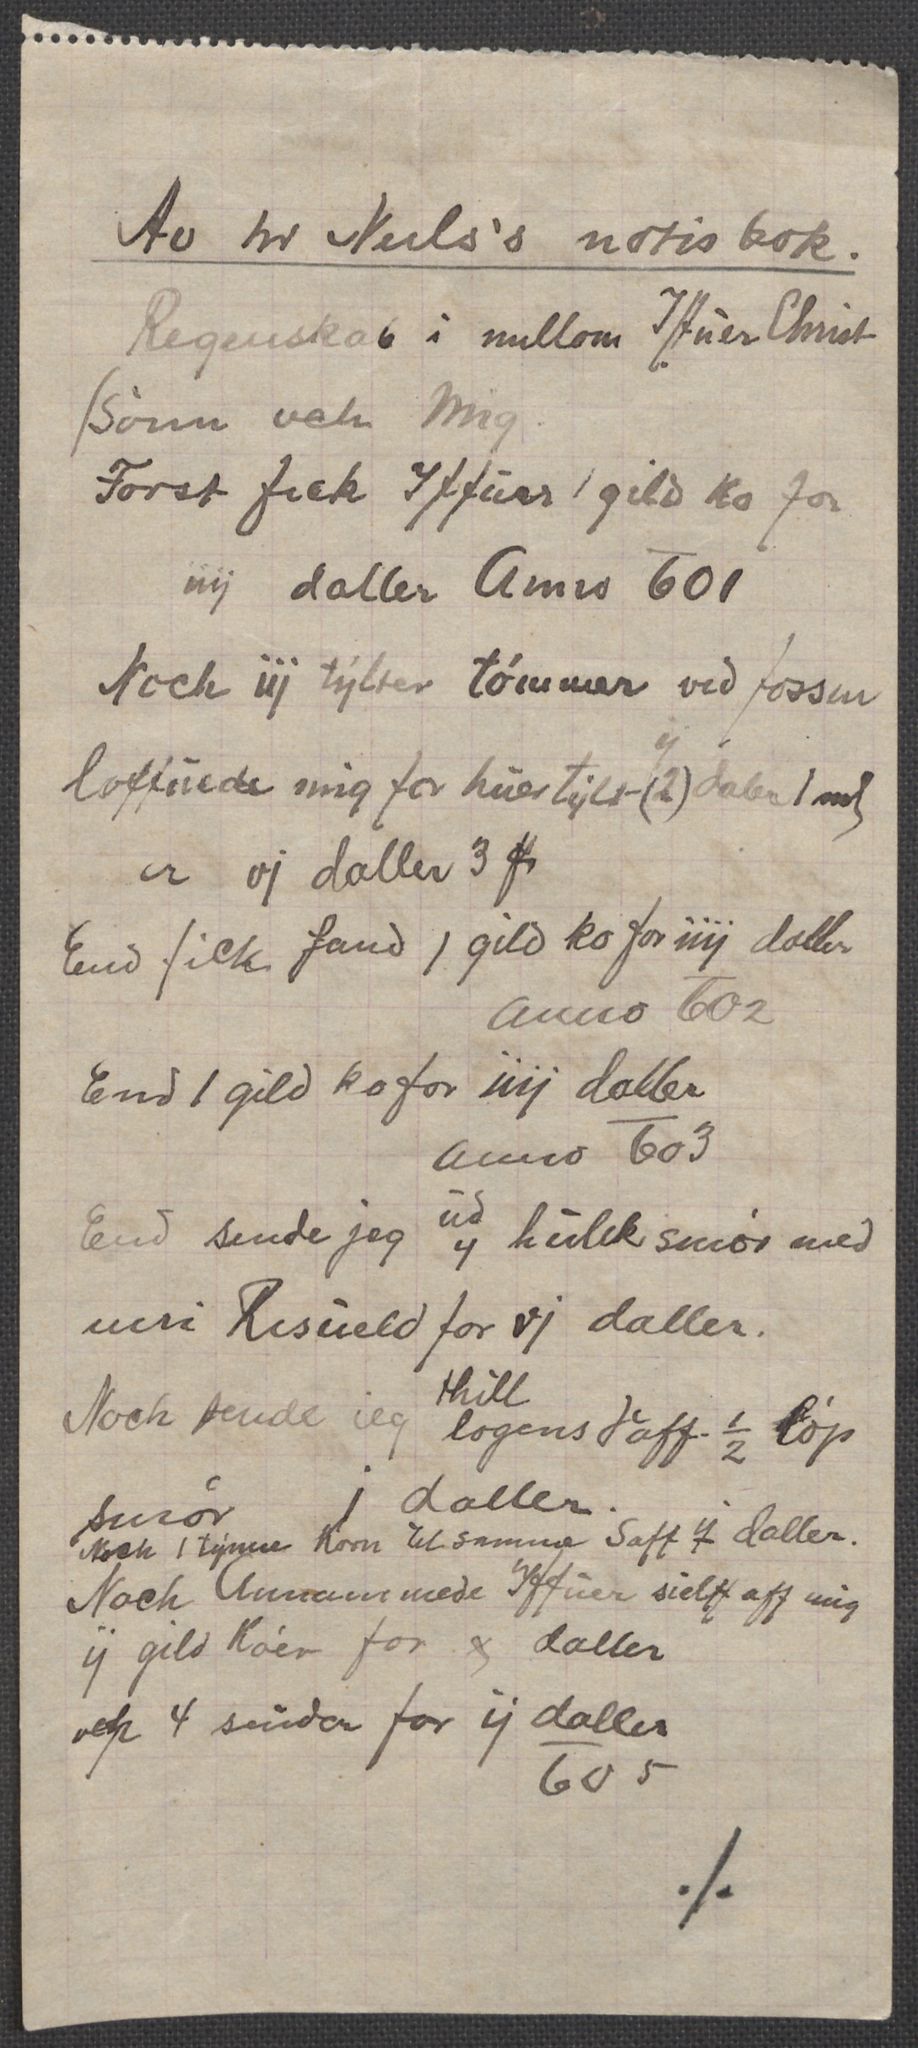 Av hr Neils's notisbok.
Regenskab i mellom Iffüer Christ
sönn och Mig.
Forst fick Iffüer 1 gild ko for
iiij daller Anno 601
Noch iij tylter tömmer ved fossen
ij
loffuede mig for hüer tylt (2) daler 1 mk
er vj daller 3 mk
End fick hand 1 gild ko for iiij daller
anno 602
End 1 gild ko for iiij daller
anno 603
üd
End sende jeg 4 hülck smör med
Resüeld for vj daller.
thill
Noch sende jeg logens Saff. 1/2 löp
smör j daller.
Noch 1 tynne Korn til samme Saff ij daller.
Noch Annammede Iffüer sielff aff mig
ij gild köer for x daller
och 4 seüder for ij daller
605
./.